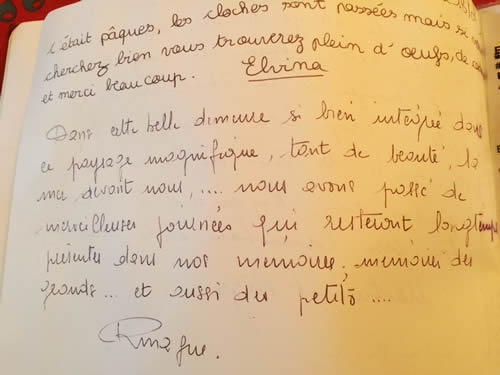 C'était pâques, les cloches sont passées mais si
cherchez bien vous trouverez plein d'oeufs, de
et merci beaucoup. Elvina
Dans cette belle demeure si bien intégrée dans
ce paysage magnifique, tant de beauté, la
mer devant nous, .... nous avons passé de
merveilleuses journées qui resteront longtemps
présentes dans nos mémoires, mémoires des
grands... et aussi des petits ....